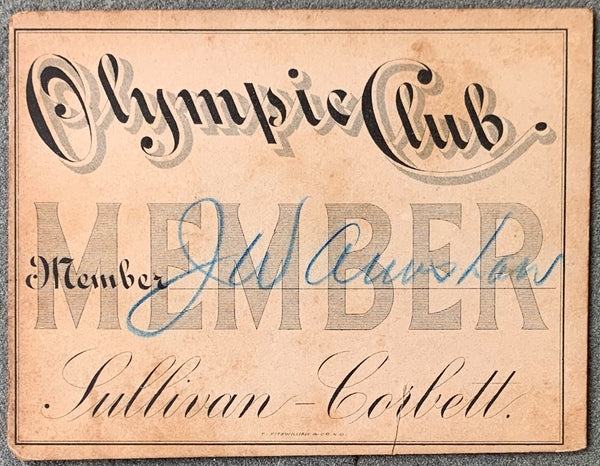 Olympic Club.
MEMBER
Member J W
Sullivan - Corbett.
F. FITZWILLIAM & CO. N.O.